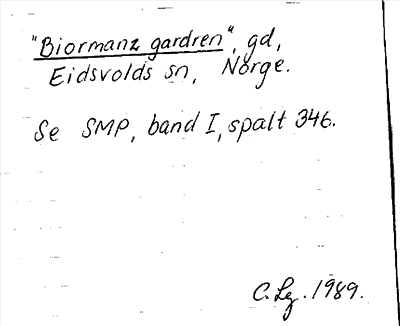 "Biormanz gardren", gd,
Eidsvolds sn, Norge.
Se SMP, band I, spalt 346.
C. Lg. 1989.